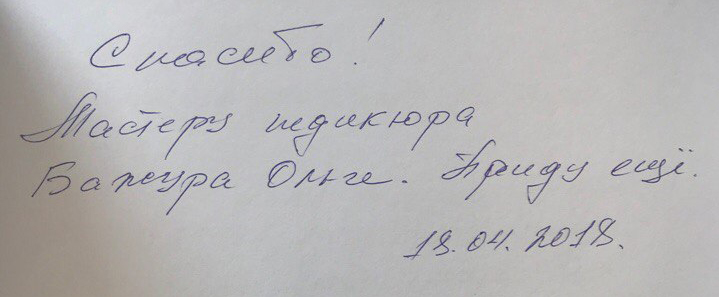 Спасибо!
Мастеру педикюра
Бажура Ольге. Приду ещё.
18.04.2018.